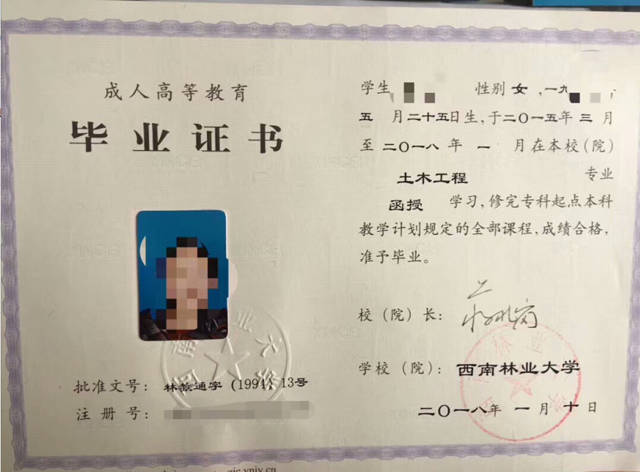 成人高等教育
毕业证书
批准文号：林教通字（1994）13号
注册号：
学生
性别 女，一九
五月二十五日生，于二〇一五年三月
至二〇一八年一月在本校（院）
土木工程 专业
函授 学习，修完专科起点本科
教学计划规定的全部课程，成绩合格，
准予毕业。
校（院）长：
学校（院）：西南林业大学
二〇一八年一月十日